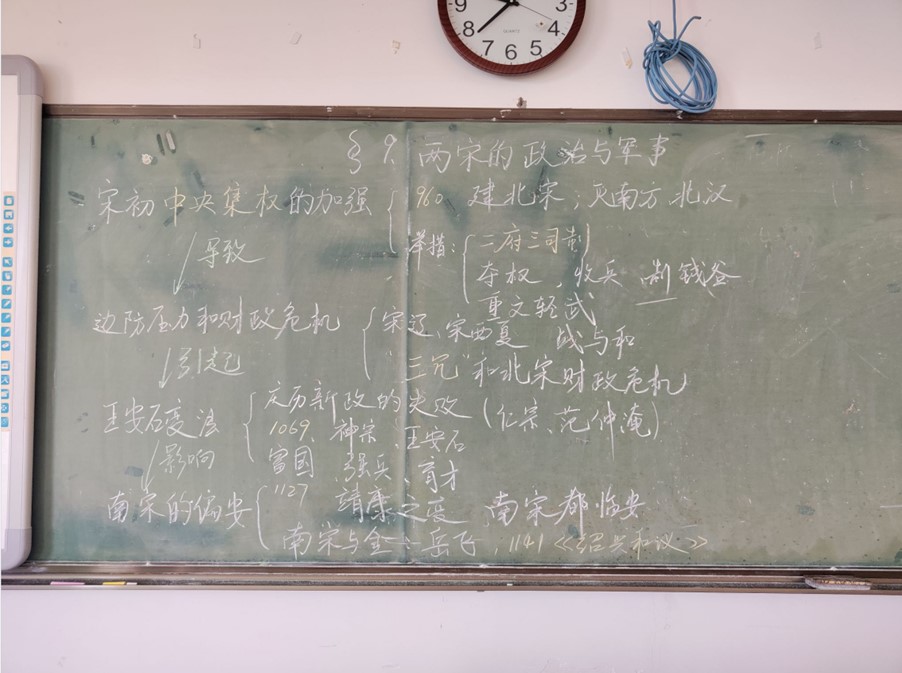 9 3
8 4
7 6 5
QUARTZ
§9. 两宋的政治与军事
宋初中央集权的加强 { 960 建北宋；灭南方、北汉
导致
举措：{ 二府三司制
夺权、收兵、制钱谷
重文轻武
边防压力和财政危机 { 宋辽、宋西夏 战与和
引起
"三冗"和北宋财政危机
王安石变法 { 庆历新政的失败（仁宗、范仲淹）
1069、神宗、王安石
影响
富国、强兵、育才
南宋的偏安 { 1127 靖康之变、南宋都临安
南宋与金：岳飞，1141《绍兴和议》